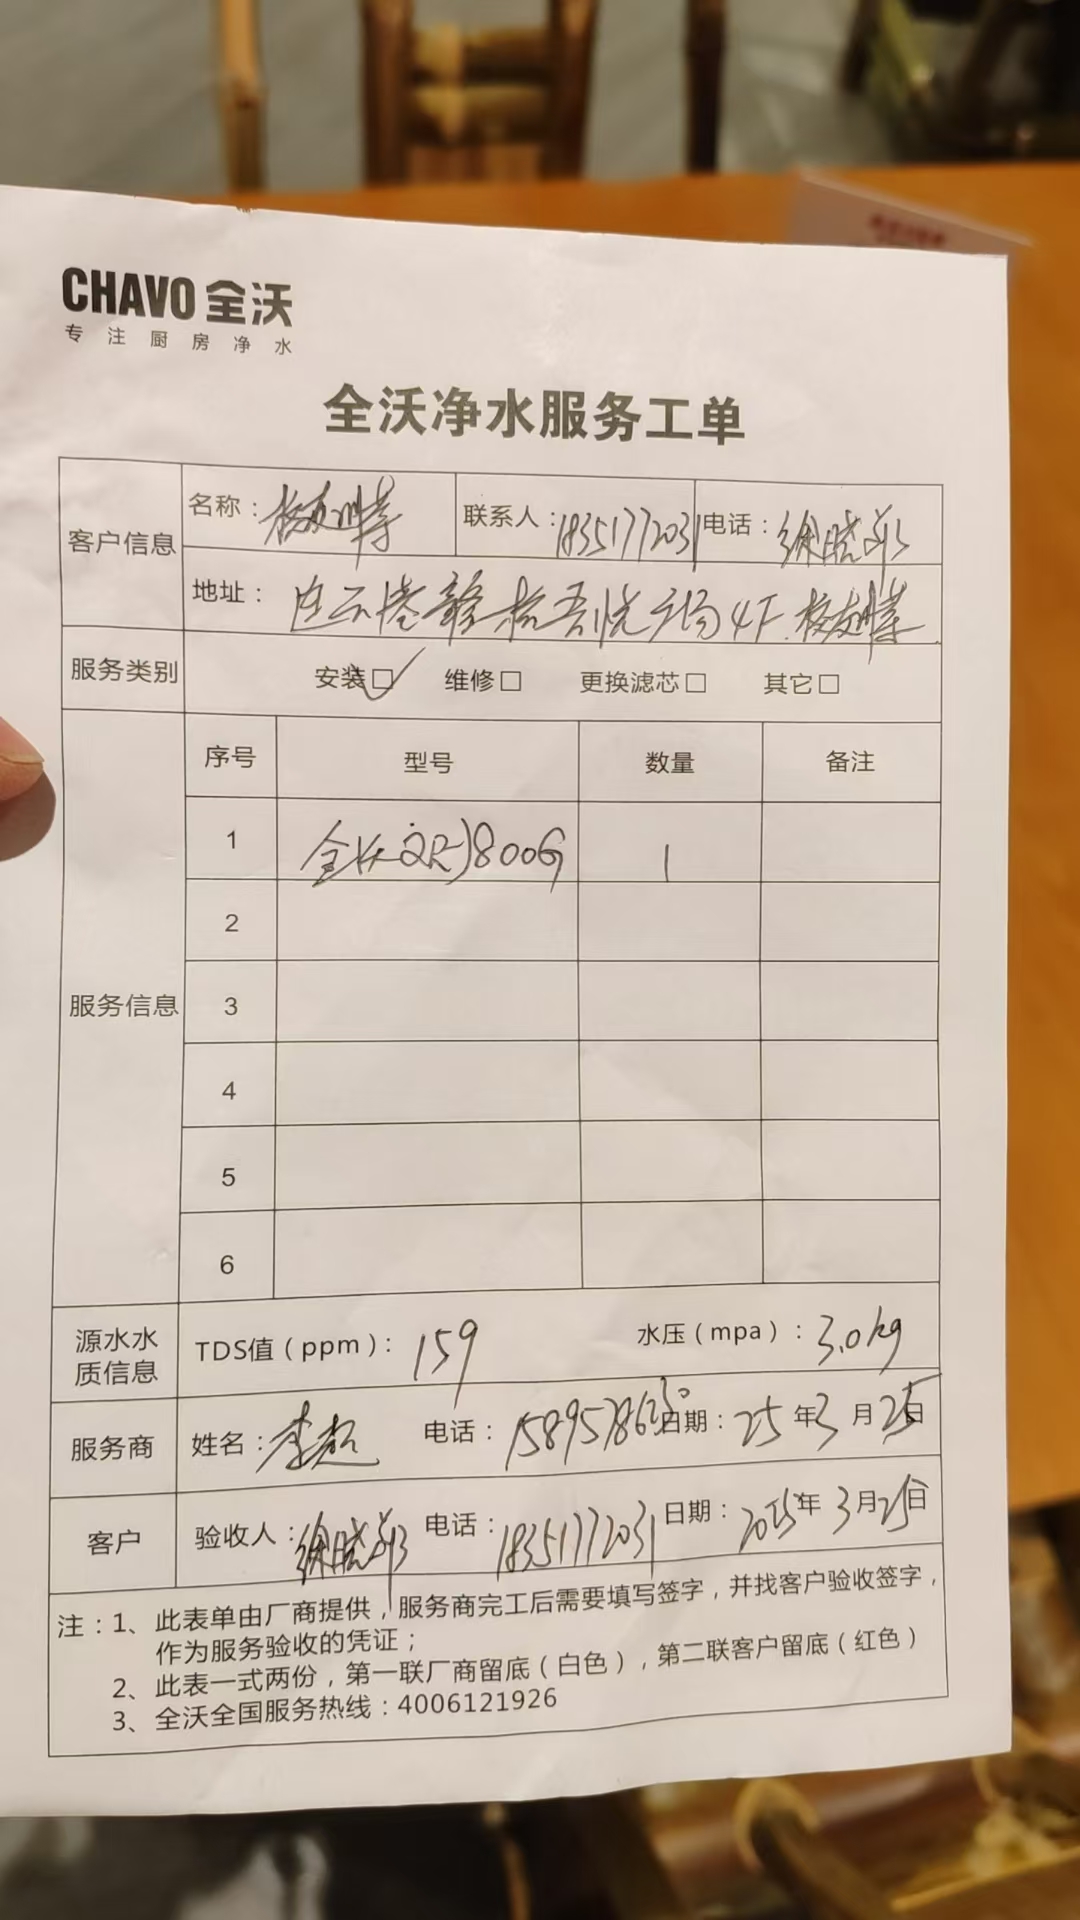 CHAVO 全沃
专注厨房净水
全沃净水服务工单
客户信息
名称：
联系人：18351772031
电话：徐晓
地址：连云港 吾悦广场4F.
服务类别
安装□✓ 维修□ 更换滤芯□ 其它□
服务信息
序号 型号 数量 备注
1 全沃 800G 1
2
3
4
5
6
源水水质信息
TDS值（ppm）：159 水压（mpa）：3.0kg
服务商
姓名：李超 电话： 日期：25年3月25日
客户
验收人：徐晓 电话：18351772031 日期：2025年3月25日
注：1、此表单由厂商提供，服务商完工后需要填写签字，并找客户验收签字，
作为服务验收的凭证；
2、此表一式两份，第一联厂商留底（白色），第二联客户留底（红色）
3、全沃全国服务热线：4006121926